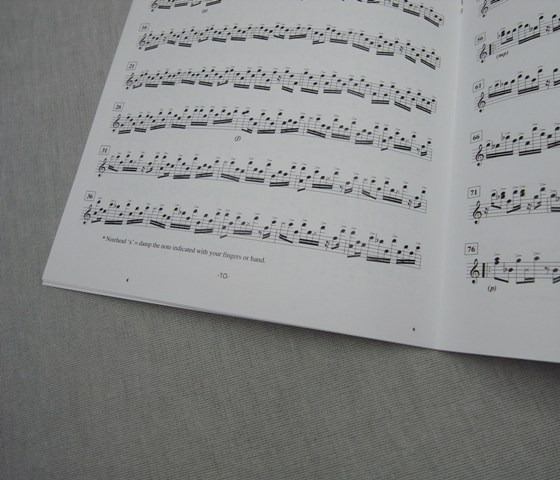 16
21
26
(f)
31
36
* Notehead 'x' = damp the note indicated with your fingers or hand.
-TO-
(mp)
66
71
76
(p)